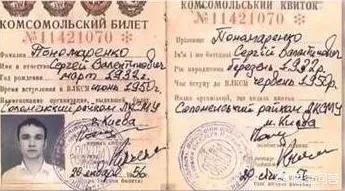 КОМСОМОЛЬСКИЙ БИЛЕТ
№11421070
Фамилия Пономаренко
Имя и отчество Сергей Валентинович
Год рождения март 1932г.
Время вступления в ВЛКСМ июнь 1950г.
Наименование организации, выдавшей
райком ЛКСМУ
г. Киева
января 56
КОМСОМОЛЬСЬКИЙ КВИТОК
№11421070
Прізвище Пономаренко
Ім'я і по батькові Сергій Валентинович
Рік народження березень 1932р.
Час вступу до ВЛКСМ червень 1950р.
райком ЛКСМУ
м. Києва